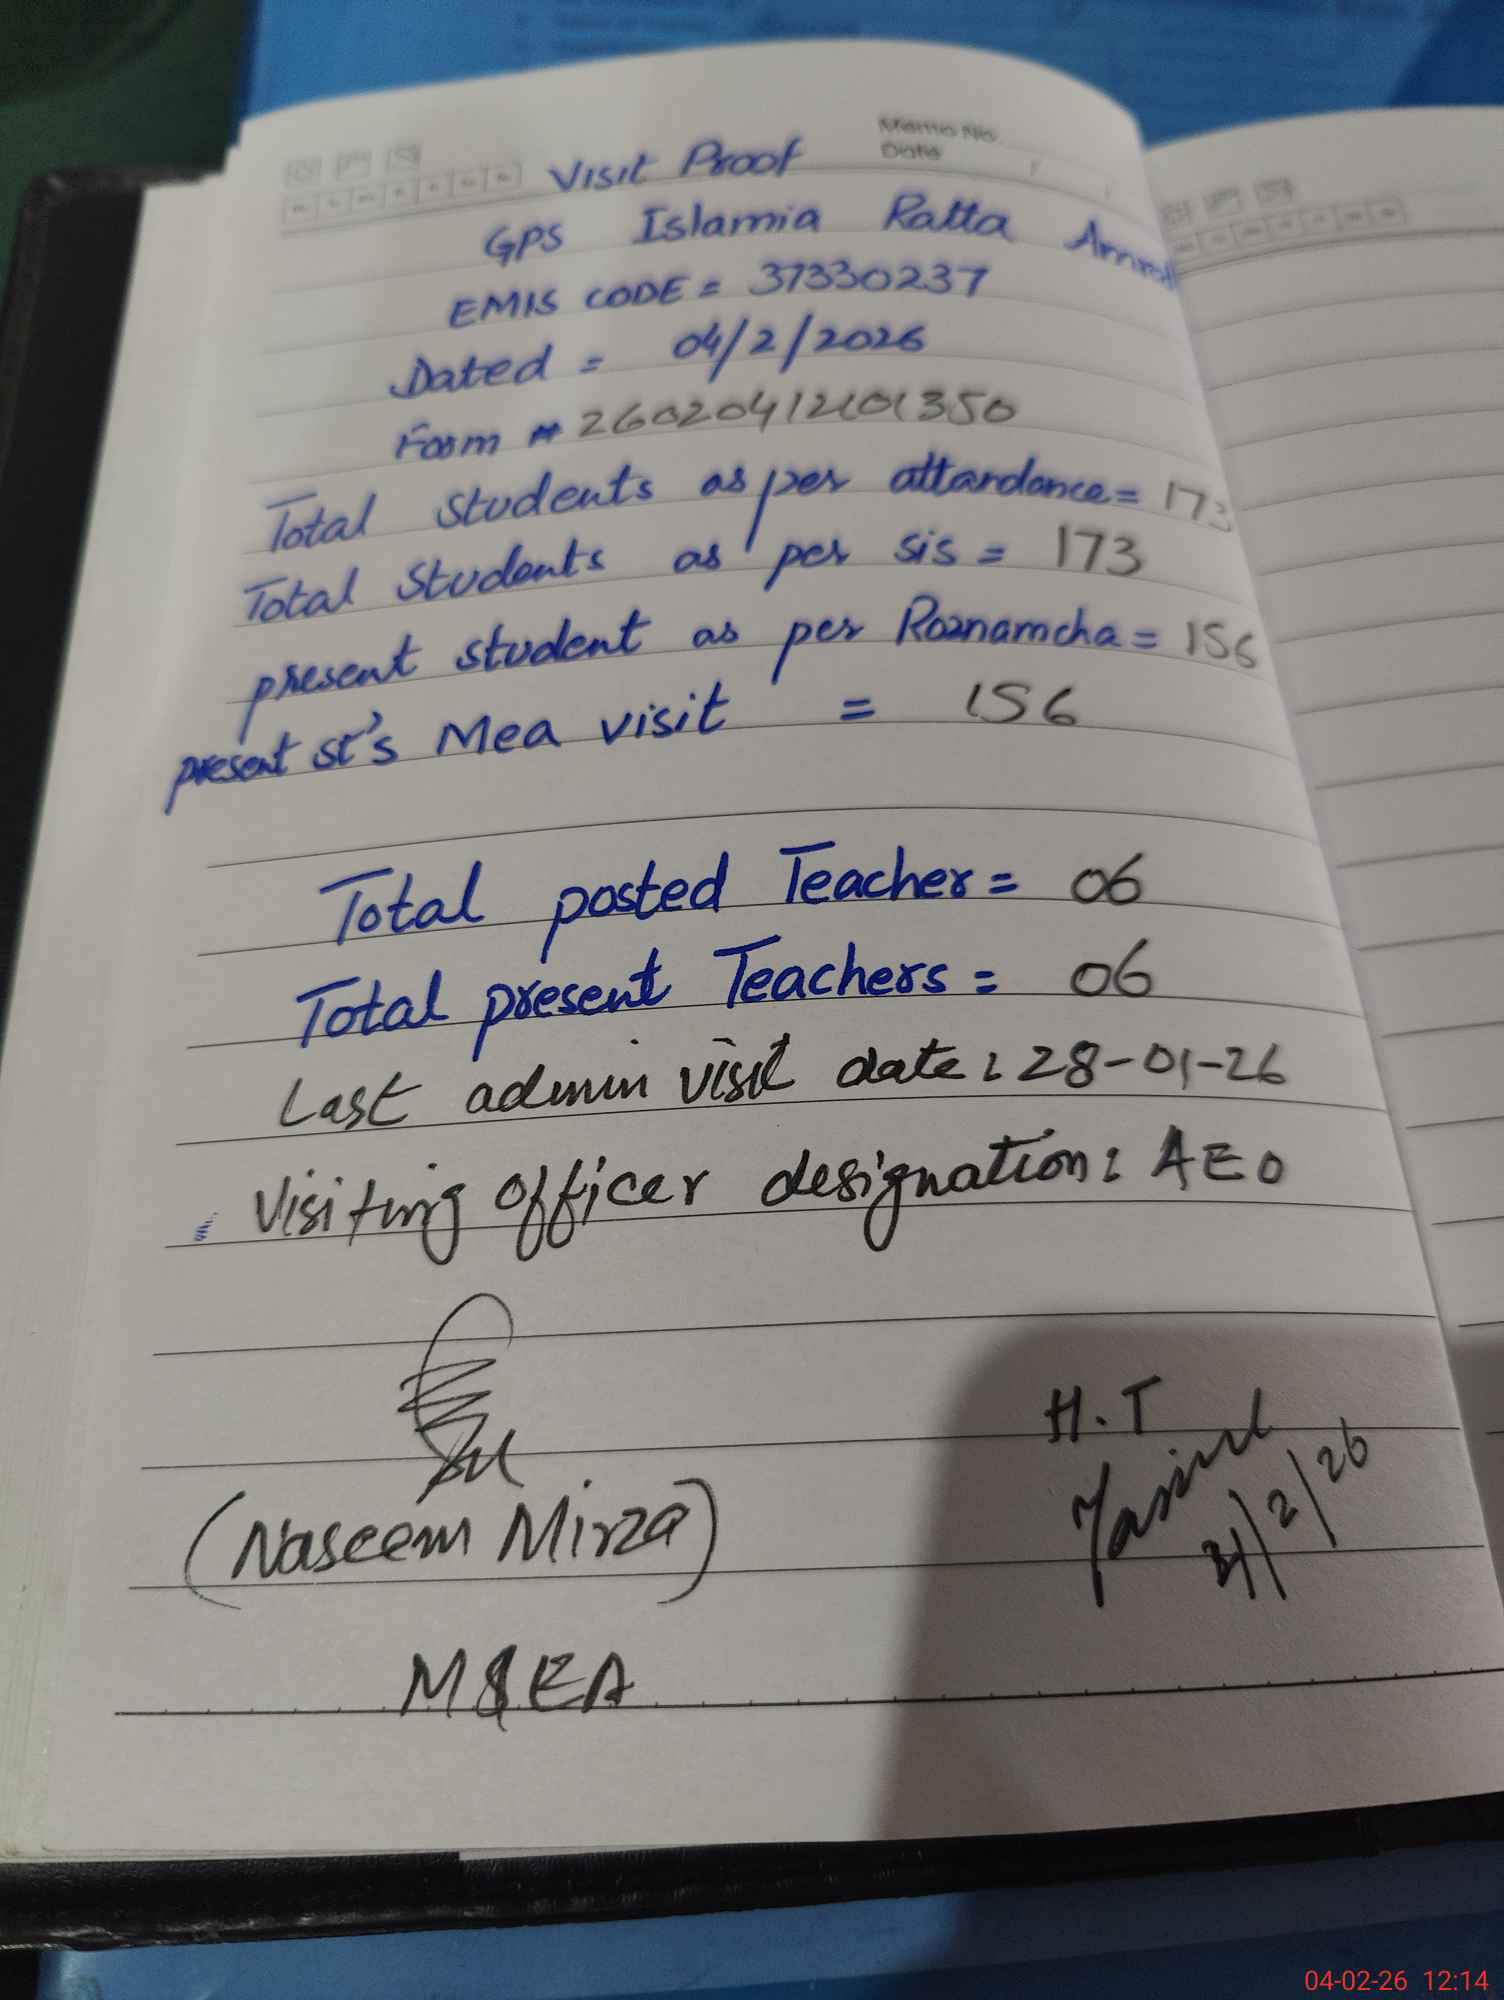 Memo No.
Date
Visit Proof
GPS Islamia Ratta Amral
EMIS CODE = 37330237
Dated = 04/2/2026
Form # 26020412101350
Total Students as per attardance = 173
Total Students as per sis = 173
present student as per Roznamcha = 156
present st's Mea visit = 156
Total posted Teacher = 06
Total present Teachers = 06
Last admin visit date: 28-01-26
Visiting officer designation: AEO
H.T
(Naseem Mirza)
M&EA
04-02-26 12:14